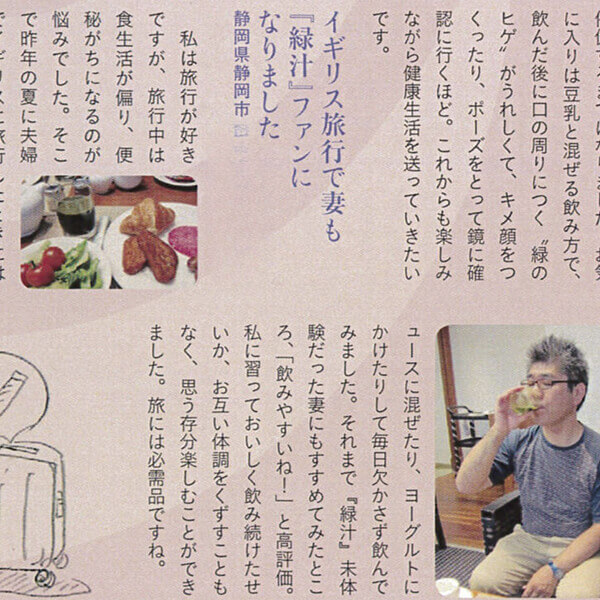 までになりました。お気
に入りは豆乳と混ぜる飲み方で、
飲んだ後に口の周りにつく〝緑の
ヒゲ〟がうれしくて、キメ顔をつ
くったり、ポーズをとって鏡に確
認に行くほど。これからも楽しみ
ながら健康生活を送っていきたい
です。
イギリス旅行で妻も
『緑汁』ファンに
なりました
静岡県静岡市
私は旅行が好き
ですが、旅行中は
食生活が偏り、便
秘がちになるのが
悩みでした。そこ
で昨年の夏に夫婦
でイギリスに旅行したときには
ュースに混ぜたり、ヨーグルトに
かけたりして毎日欠かさず飲んで
みました。それまで『緑汁』未体
験だった妻にもすすめてみたとこ
ろ、「飲みやすいね！」と高評価。
私に習っておいしく飲み続けたせ
いか、お互い体調をくずすことも
なく、思う存分楽しむことができ
ました。旅には必需品ですね。